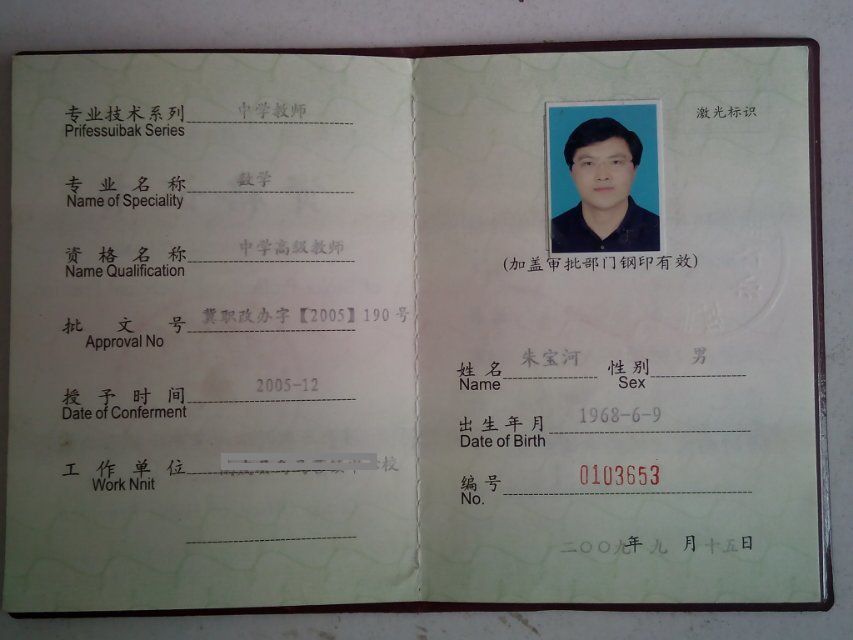 专业技术系列 中学教师
Prifessuibak Series
专业名称 数学
Name of Speciality
资格名称 中学高级教师
Name Qualification
批文号 冀职改办字【2005】190号
Approval No
授予时间 2005-12
Date of Conferment
工作单位 校
Work Nnit
激光标识
(加盖审批部门钢印有效)
姓名 朱宝河 性别 男
Name Sex
出生年月 1968-6-9
Date of Birth
编号 0103653
No.
二〇〇九年九月十五日